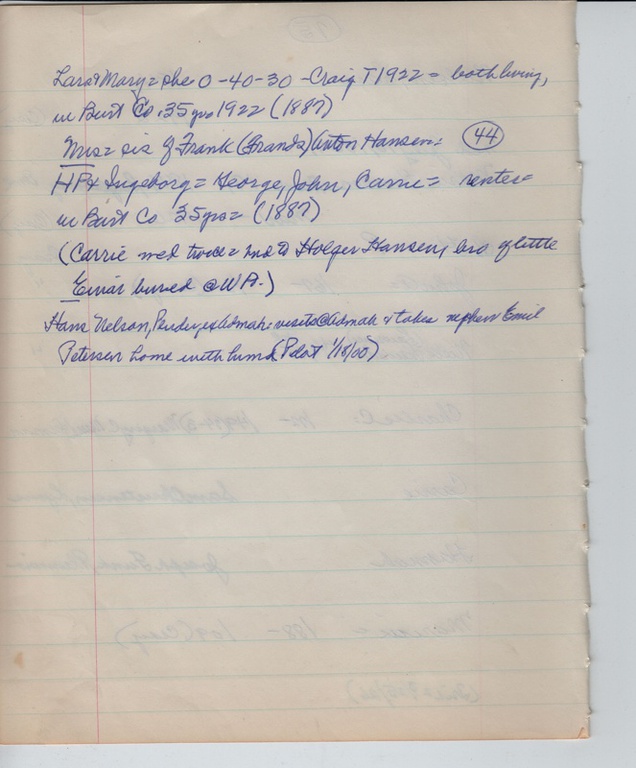 Lars & Mary = she O-40-30 - Craig T 1922 = both living,
in Burt Co. 35 yrs 1922 (1887)
Mrs = sis of Frank (Granda) Anton Hansen = 44
HP & Ingeborg = George, John, Carrie = renter =
in Burt Co 35 yrs = (1887)
(Carrie med twice = 2nd to Holger Hansen, bro of little
Einar buried @ WA.)
Hans Nelson, Pender, ex Admah: visits @ Admah & takes nephew Emil
Petersen home with him (Pilot 1/18/00)